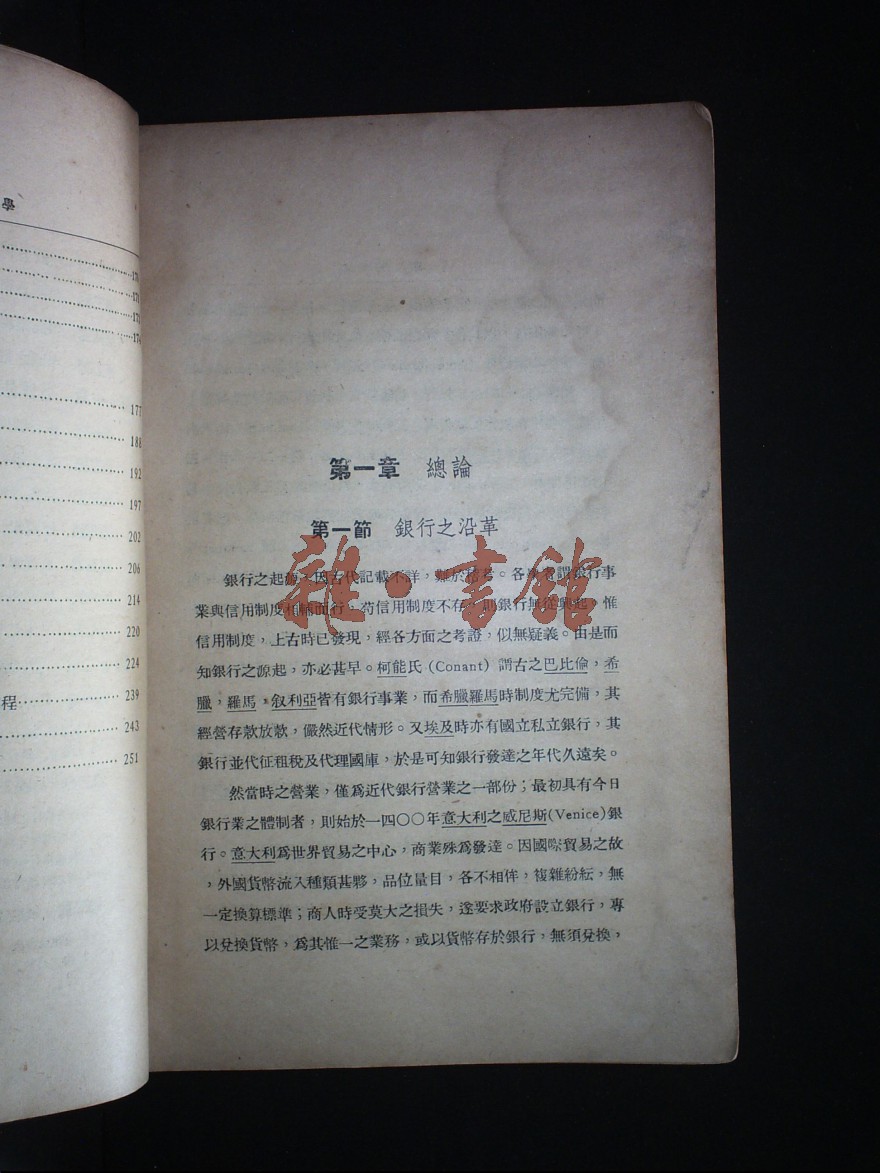 170
171
173
174
177
188
192
197
202
206
214
220
224
程 239
243
251
第一章 總論
第一節 銀行之沿革
銀行之起源，因古代記載不詳，難於稽考。各學者謂銀行事
業與信用制度相輔而行，苟信用制度不存，則銀行無從興起。惟
信用制度，上古時已發現，經各方面之考證，似無疑義。由是而
知銀行之源起，亦必甚早。柯能氏 (Conant) 謂古之巴比倫，希
臘，羅馬，叙利亞皆有銀行事業，而希臘羅馬時制度尤完備，其
經營存款放款，儼然近代情形。又埃及時亦有國立私立銀行，其
銀行並代征租稅及代理國庫，於是可知銀行發達之年代久遠矣。
然當時之營業，僅爲近代銀行營業之一部份；最初具有今日
銀行業之體制者，則始於一四〇〇年意大利之威尼斯(Venice)銀
行。意大利爲世界貿易之中心，商業殊爲發達。因國際貿易之故
，外國貨幣流入種類甚夥，品位量目，各不相侔，複雜紛紜，無
一定換算標準；商人時受莫大之損失，遂要求政府設立銀行，專
以兌換貨幣，爲其惟一之業務，或以貨幣存於銀行，無須兌換，
雜·書館